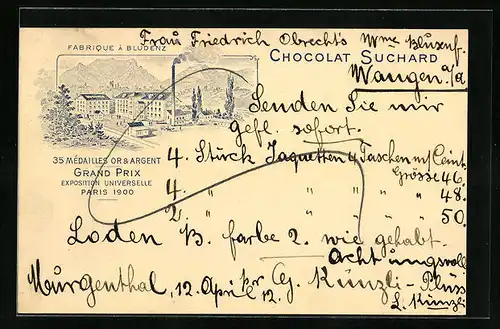 Frau Friedrich Obrecht's Wwe Blusenf.
FABRIQUE À BLUDENZ
CHOCOLAT SUCHARD
Wangen a/a
Senden Sie mir
gefl. sofort.
35 MÉDAILLES OR & ARGENT
GRAND PRIX
EXPOSITION UNIVERSELLE
PARIS 1900
4. Stück Jaquetten 4 Taschen m/ Ceint.
Grösse 46.
4. " " " " 48.
2. " " " " 50.
Loden B. farbe 2. wie gehabt.
Achtungsvoll
Murgenthal, 12. April 12. pr Cg. Künzli-Plüss
L. Künzli